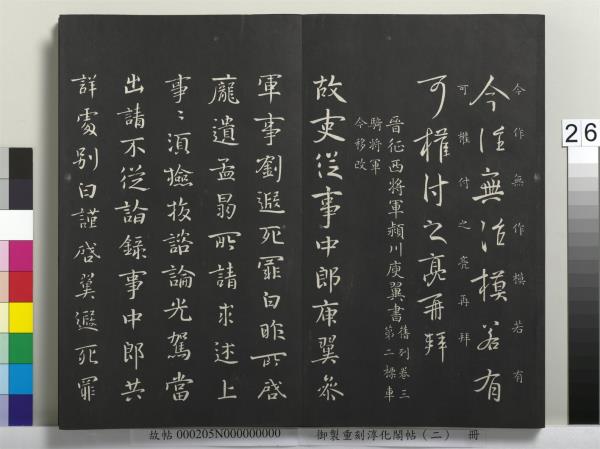 今作無作模若有
今作無作模若有
可權付之亮再拜
可權付之亮再拜
晉征西將軍潁川庾翼書
舊列卷三
第二標車
騎將軍
今移改
故吏從事中郎庾翼參
軍事劉遐死罪白昨所啓
龐遺孟昜所請求述上
事〻須檢校諮論光駕當
出請不從詣錄事中郎共
詳處別白謹啓翼遐死罪
26
故帖 000205N000000000 御製重刻淳化閣帖（二） 冊